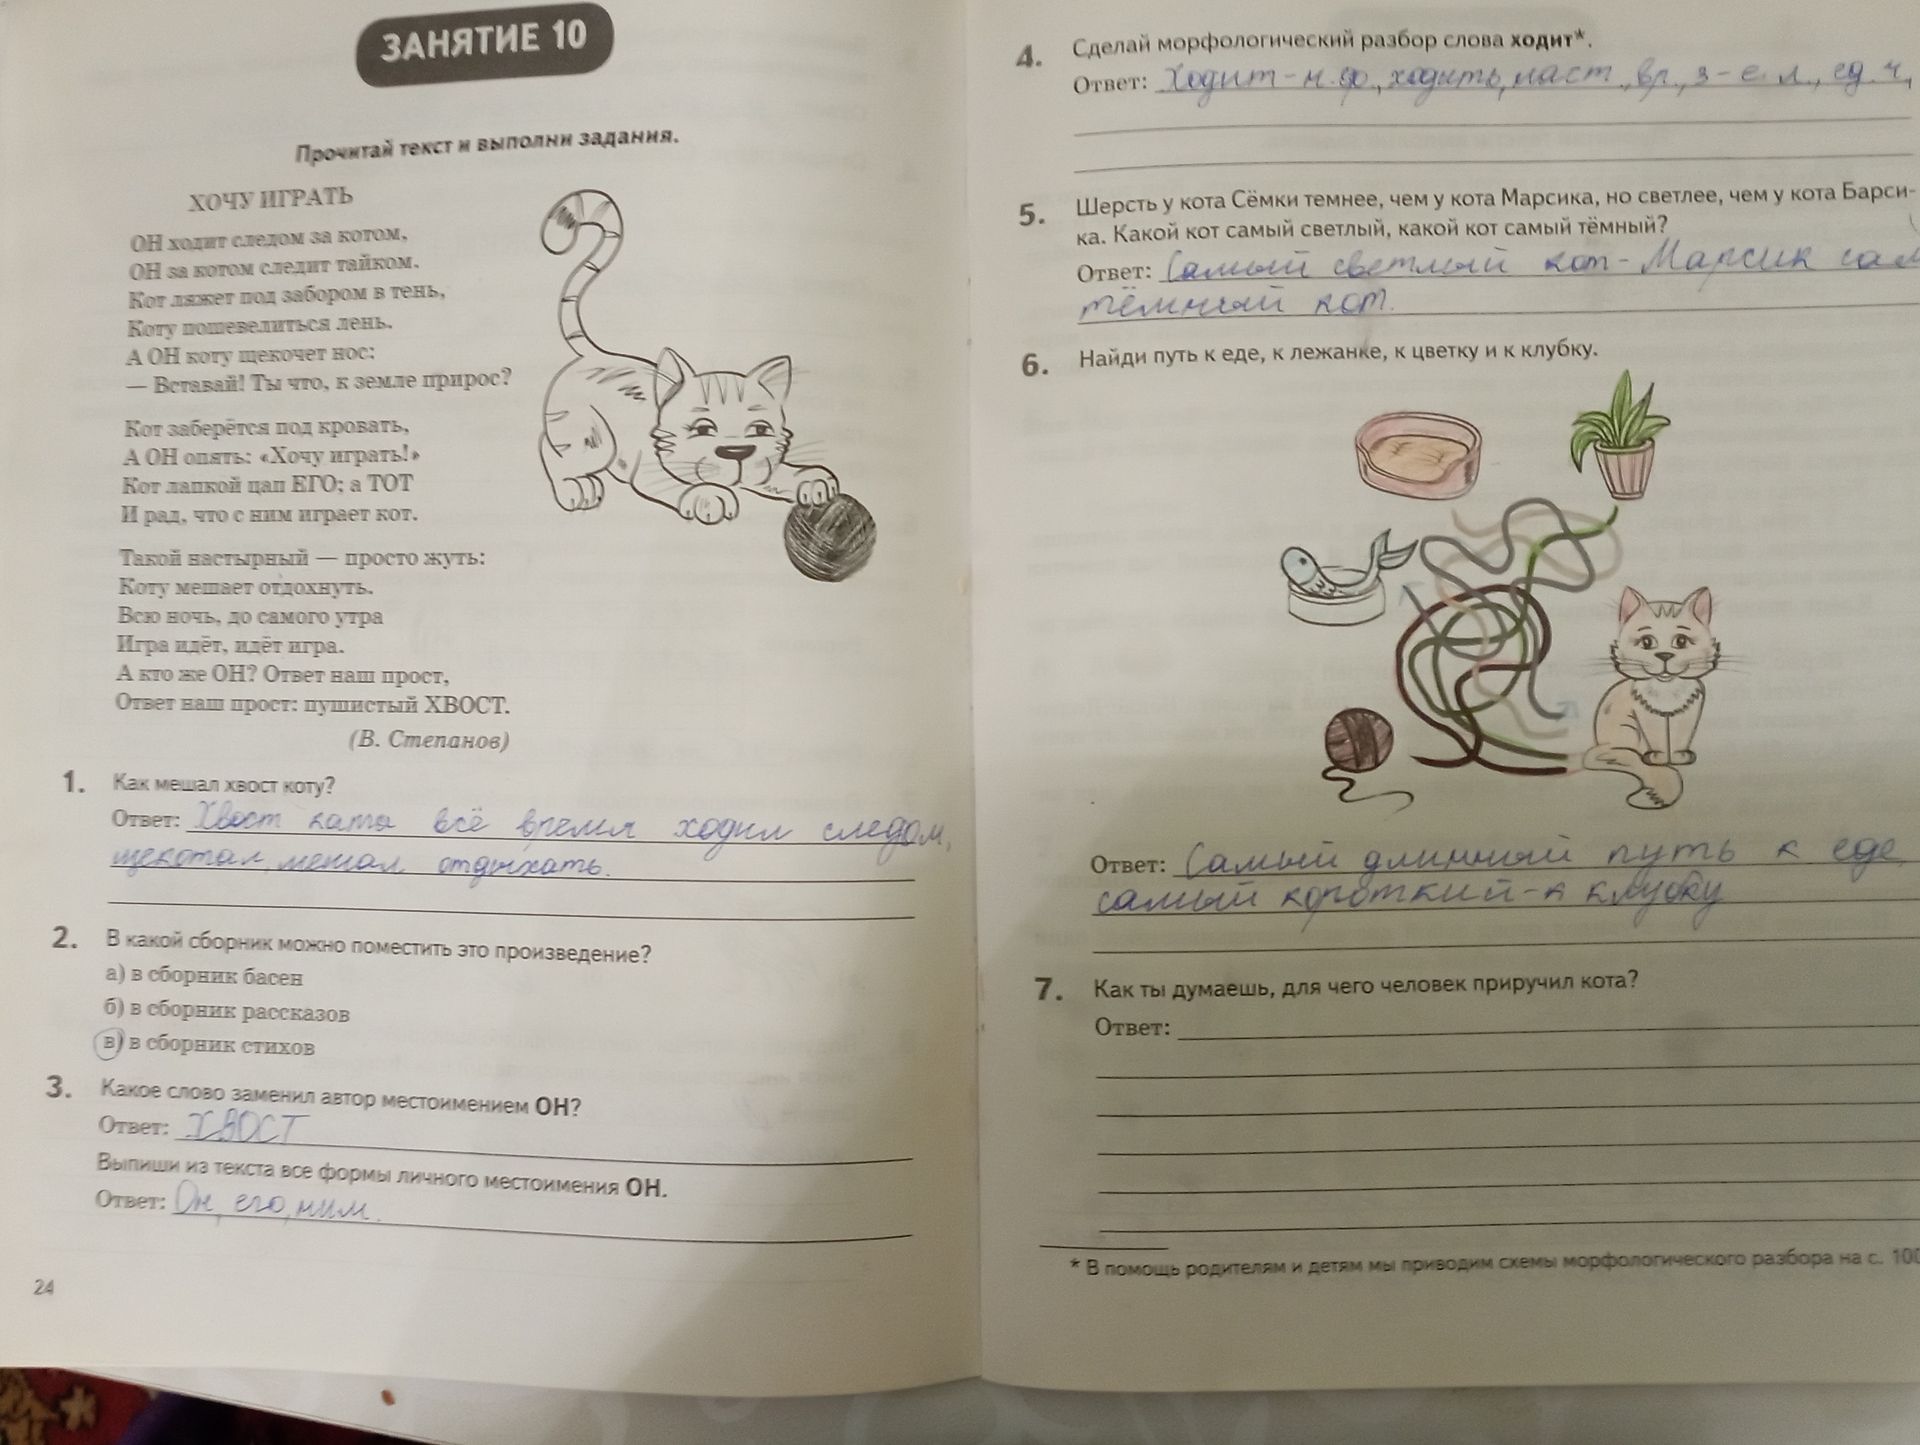 ЗАНЯТИЕ 10
Прочитай текст и выполни задания.
ХОЧУ ИГРАТЬ
ОН ходит следом за котом,
ОН за котом следит тайком.
Кот ляжет под забором в тень,
Коту пошевелиться лень.
А ОН коту щекочет нос:
— Вставай! Ты что, к земле прирос?
Кот заберётся под кровать,
А ОН опять: «Хочу играть!»
Кот лапкой цап ЕГО; а ТОТ
И рад, что с ним играет кот.
Такой настырный — просто жуть:
Коту мешает отдохнуть.
Всю ночь, до самого утра
Игра идёт, идёт игра.
А кто же ОН? Ответ наш прост,
Ответ наш прост: пушистый ХВОСТ.
(В. Степанов)
1. Как мешал хвост коту?
Ответ: Хвост ката всё время ходил следом,
щекотал, мешал отдыхать.
2. В какой сборник можно поместить это произведение?
а) в сборник басен
б) в сборник рассказов
в) в сборник стихов
3. Какое слово заменил автор местоимением ОН?
Ответ: ХВОСТ
Выпиши из текста все формы личного местоимения ОН.
Ответ: Он, его, ним.
24
4. Сделай морфологический разбор слова ходит*.
Ответ: Ходит - н.ф., ходить, наст., вр., 3-е л., ед. ч,
5. Шерсть у кота Сёмки темнее, чем у кота Марсика, но светлее, чем у кота Барси-
ка. Какой кот самый светлый, какой кот самый тёмный?
Ответ: Самый светлый кот - Марсик сам
тёмный кот.
6. Найди путь к еде, к лежанке, к цветку и к клубку.
Ответ: Самый длинный путь к еде,
самый короткий - к клубку
7. Как ты думаешь, для чего человек приручил кота?
Ответ:
* В помощь родителям и детям мы приводим схемы морфологического разбора на с. 100